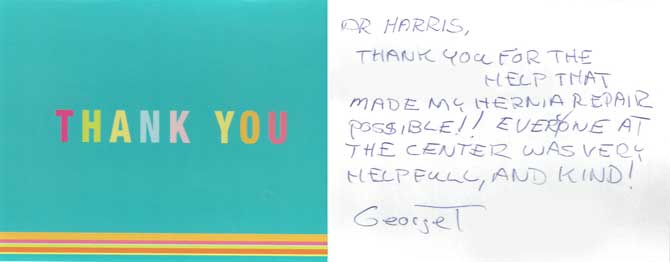 THANK YOU
DR HARRIS,
THANK YOU FOR THE
HELP THAT
MADE MY HERNIA REPAIR
POSSIBLE!! EVERYONE AT
THE CENTER WAS VERY
HELPFULL, AND KIND!
George T